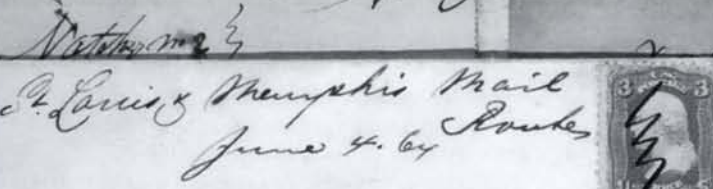 Natchez
St. Louis & Memphis Mail
Route
June 4. 64
3 3